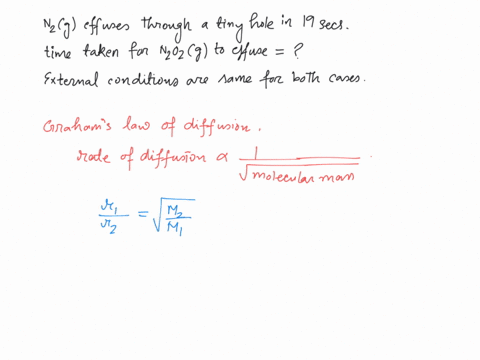 N₂(g) effuses through a tiny hole in 19 secs.
time taken for N₂O₂(g) to effuse = ?
External conditions are same for both cases.
Graham's law of diffusion.
rate of diffusion ∝ 1/√molecular mass
r₁/r₂ = √(M₂/M₁)